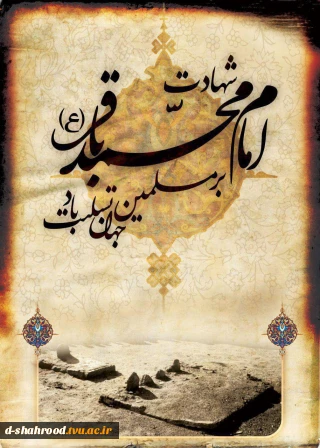 شهادت
امام محمد باقر (ع)
بر مسلمین
جهان تسلیت باد
d-shahrood.tvu.ac.ir